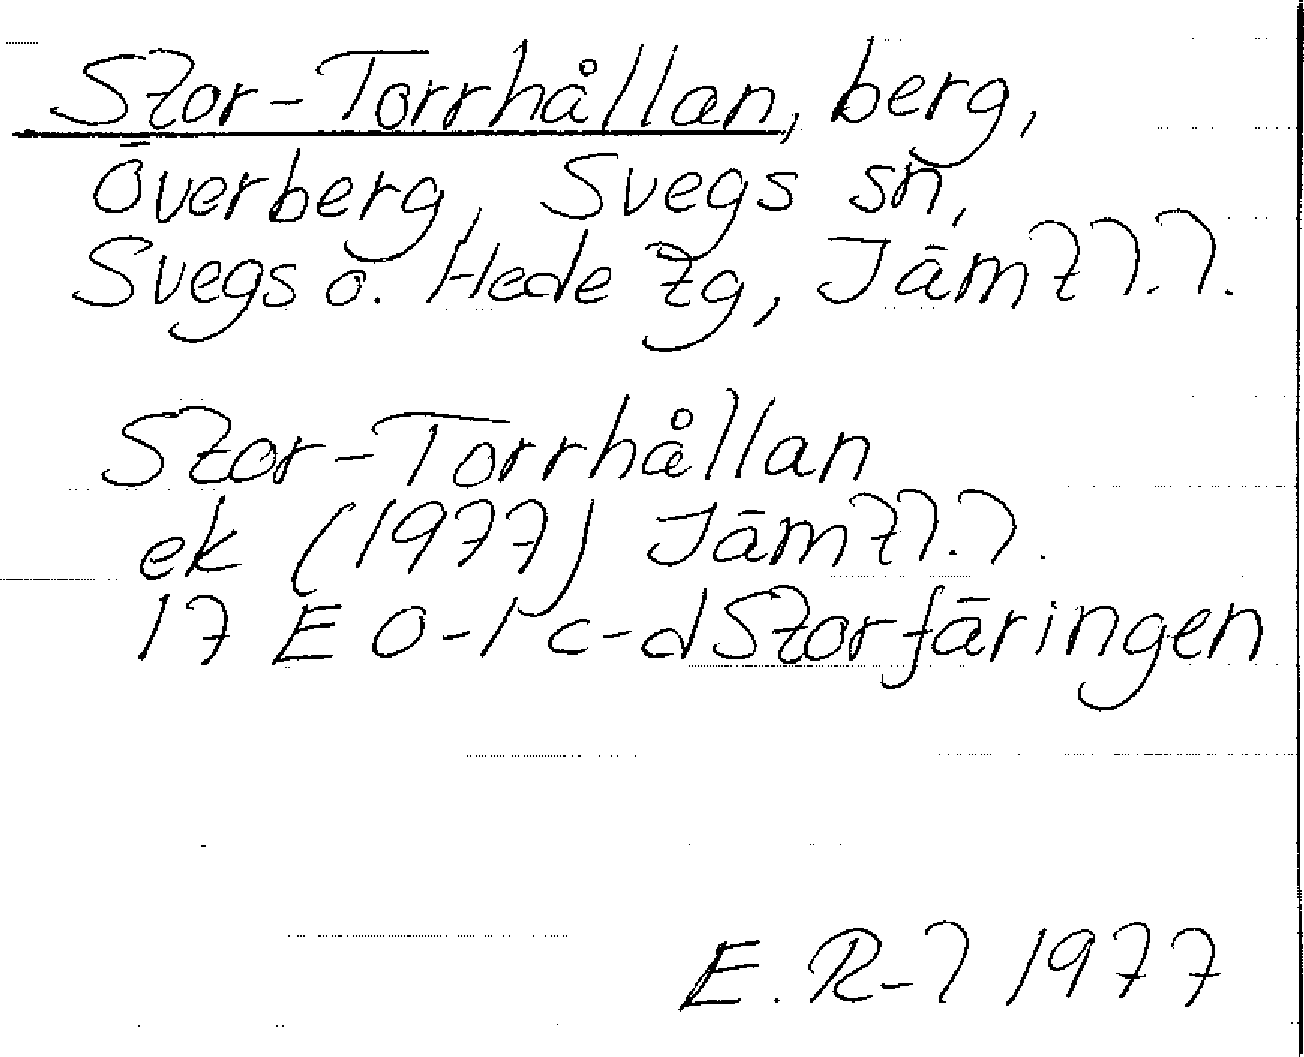 Stor-Torrhållan, berg,
Överberg, Svegs sn,
Svegs o. Hede tg, Jämtl.l.
Stor-Torrhållan
ek (1977) Jämtl.l.
17 E 0-1 c-d Storfäringen
E.R-l 1977